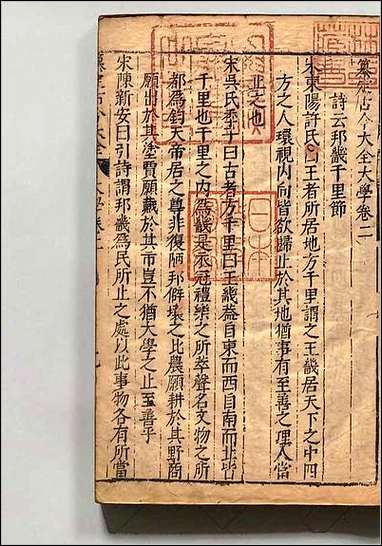 纂定古今大全大學卷二
詩云邦畿千里節
宋東陽許氏曰王者所居地方千里謂之王畿居天下之中四
方之人環視內向皆欲歸止於其地猶事有至善之理人當
止之也
宋吳氏季子曰古者方千里曰王畿蓋自東而西自南而北皆
千里也千里之內為畿是衣冠禮樂之所萃聲名文物之所
都為鈞天帝居之尊非復陋邦僻壤之比農願耕於其野商
願出於其塗賈願藏於其市豈不猶大學之止至善乎
宋陳新安曰引詩謂邦畿為民所止之處以此事物各有所當